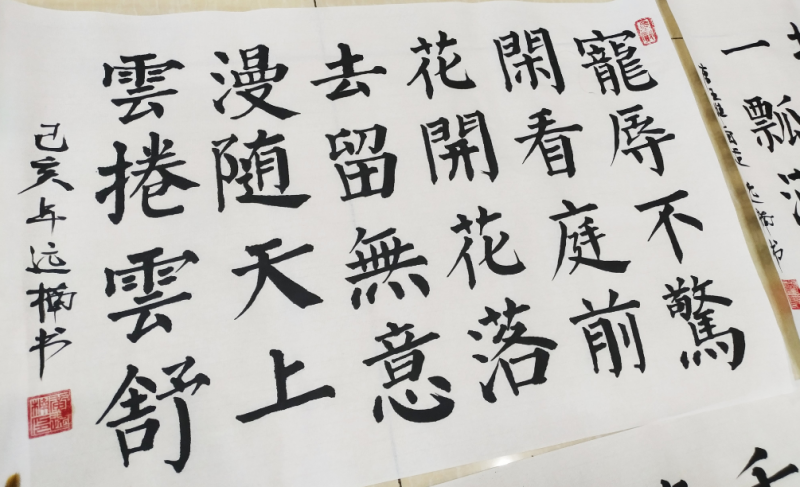 寵辱不驚
閑看庭前
花開花落
去留無意
漫随天上
雲捲雲舒
己亥年远楠书
一瓢
远楠书